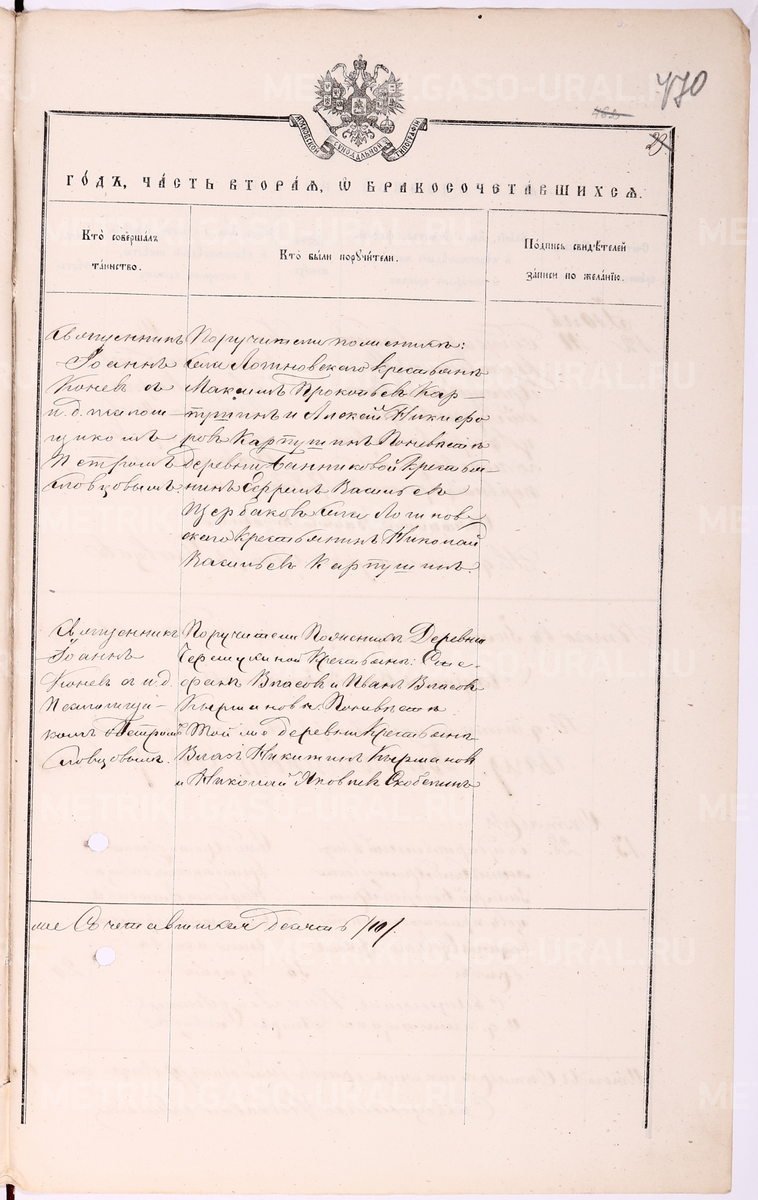 470
29.
МОСКОВСКОЙ СѴНОДАЛЬНОЙ ТИПОГРАФІИ
ГОДЪ, ЧАСТЬ ВТОРАЯ, Ѡ БРАКОСОЧЕТАВШИХСЯ.
Кто совершалъ таинство.
Кто были поручители.
Подпись свидѣтелей записи по желанію.
Священникъ
Іоаннъ
Коневъ съ
и. д. псалом-
щикомъ
Петромъ
Словцовымъ.
Поручители по женихѣ:
села Логиновскаго крестьяне
Максимъ Прокопьевъ Кар-
пушинъ и Алексѣй Никифо
ровъ Карпушинъ По невѣстѣ
деревни Банниковой крестья
нинъ Ефремъ Васильевъ
Щербаковъ села Логинов-
скаго крестьянинъ Николай
Васильевъ Карпушинъ.
Священникъ
Іоаннъ
Коневъ съ и. д.
Псаломщи-
комъ Петромъ
Словцовымъ.
Поручители По женихѣ Деревни
крестьяне: Сте-
фанъ Власовъ и Иванъ Власовъ
Кырмановы. По невѣстѣ
Той же деревни Крестьяне
Власъ Никитинъ Кырмановъ
и Николай Яковлевъ Скобелинъ
Сочетавшихся десять /10/.
METRIKI.GASO-URAL.RU